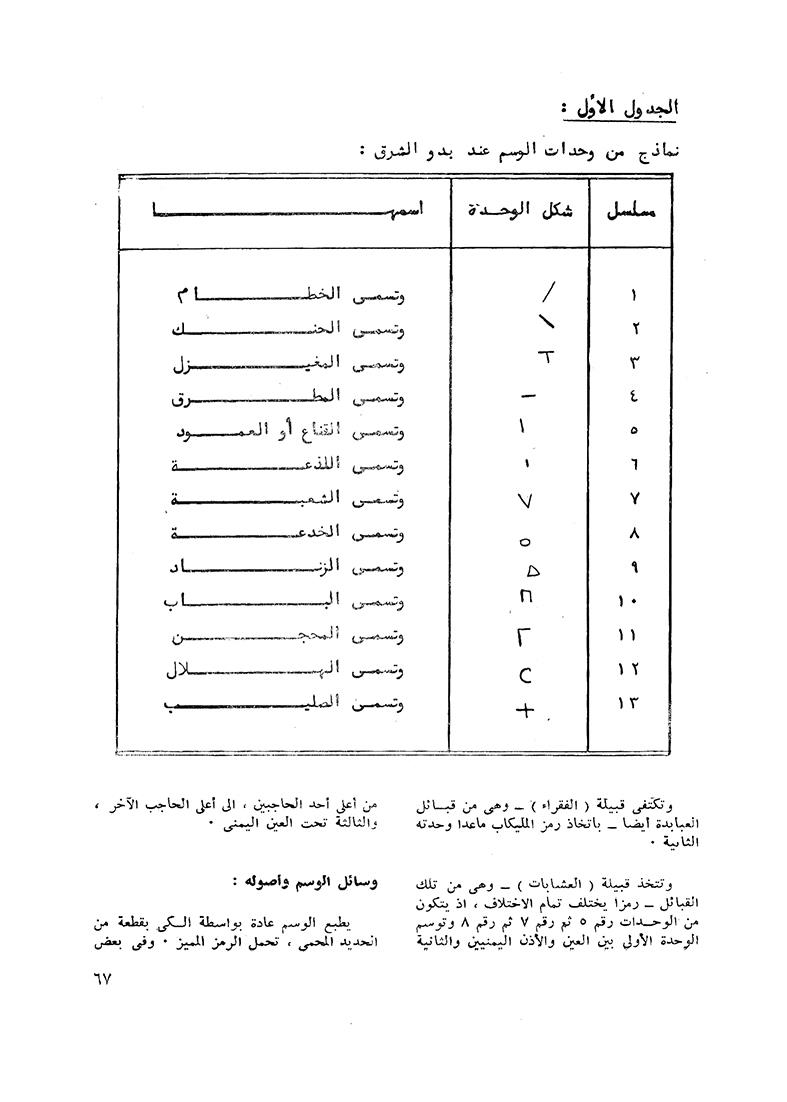 الجدول الأول :
نماذج من وحدات الوسم عند بدو الشرق :
مسلسل شكل الوحدة اسمها
١ / وتسمى الخطام
٢ \ وتسمى الحنك
٣ T وتسمى المغيزل
٤ — وتسمى المطرق
٥ ١ وتسمى القناع أو العمود
٦ ı وتسمى اللذعة
٧ V وتسمى الشعبة
٨ o وتسمى الخدعة
٩ △ وتسمى الزناد
١٠ Π وتسمى الباب
١١ Γ وتسمى المحجن
١٢ C وتسمى الهلال
١٣ + وتسمى الصليب
وتكتفى قبيلة ( الفقراء ) ــ وهى من قبائل
العبابدة أيضا ــ باتخاذ رمز المليكاب ماعدا وحدته
الثانية ٠
وتتخذ قبيلة ( العشابات ) ــ وهى من تلك
القبائل ــ رمزا يختلف تمام الاختلاف ، اذ يتكون
من الوحدات رقم ٥ ثم رقم ٧ ثم رقم ٨ وتوسم
الوحدة الأولى بين العين والأذن اليمنيين والثانية
من أعلى أحد الحاجبين ، الى أعلى الحاجب الآخر ،
والثالثة تحت العين اليمنى ٠
وسائل الوسم وأصوله :
يطبع الوسم عادة بواسطة الكى بقطعة من
الحديد المحمى ، تحمل الرمز المميز ٠ وفى بعض
٦٧